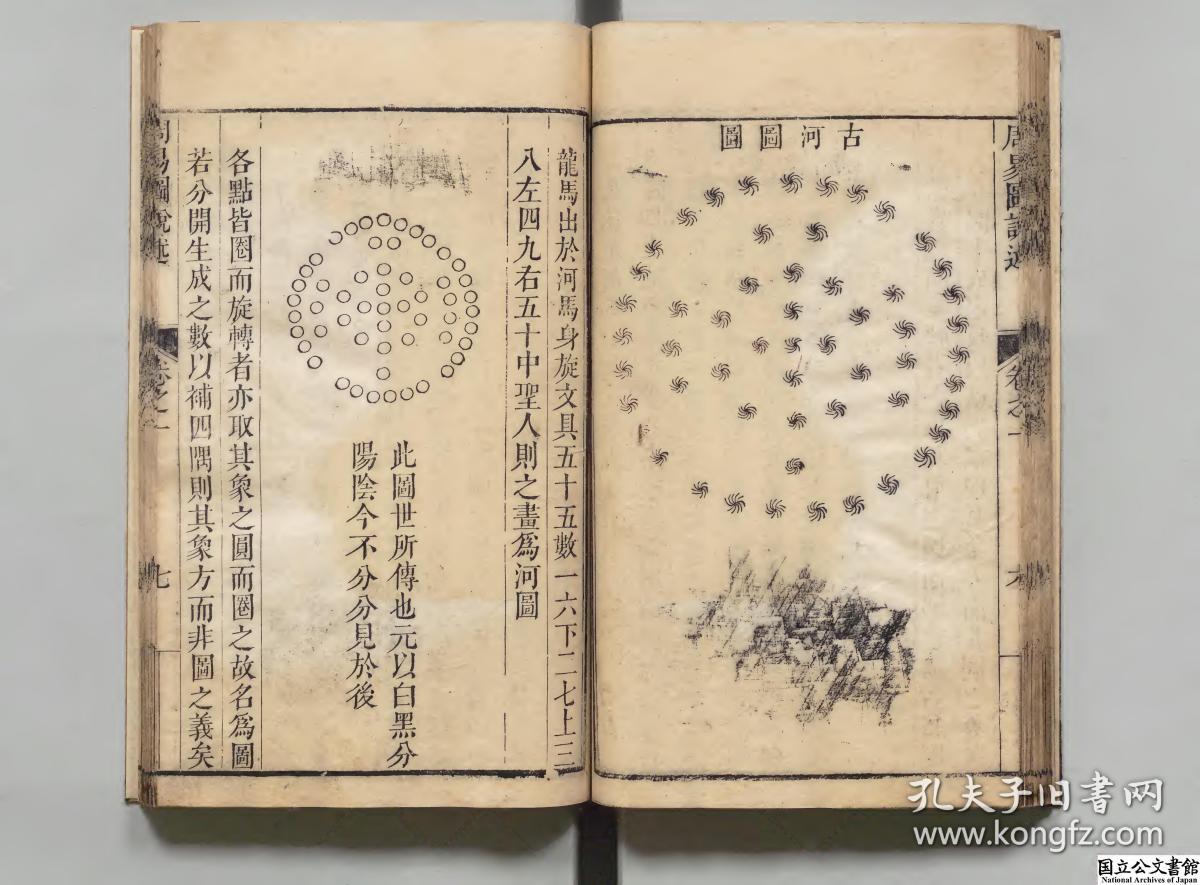 古河圖圖
周易圖說述
卷之一
六
龍馬出於河馬身旋文具五十五數一六下二七上三
八左四九右五十中聖人則之畫爲河圖
此圖世所傳也元以白黑分
陽陰今不分分見於後
各點皆圈而旋轉者亦取其象之圓而圈之故名爲圖
若分開生成之數以補四隅則其象方而非圖之義矣
周易圖說述
卷之一
七
孔夫子旧書网
www.kongfz.com
国立公文書館
National Archives of Japan